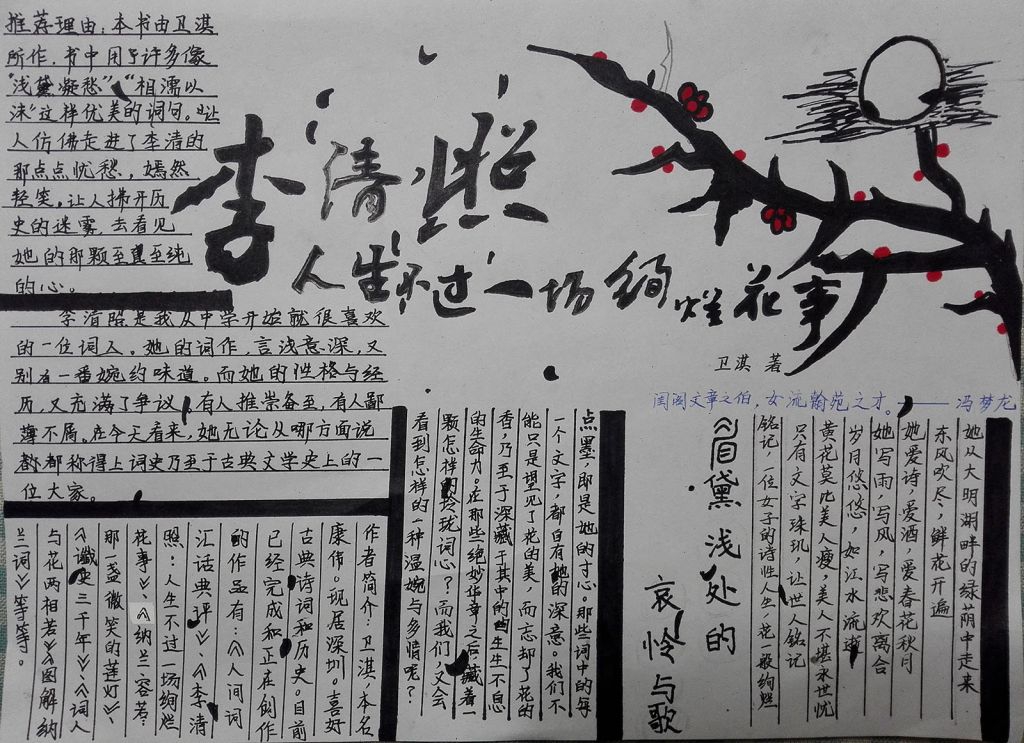 推荐理由：本书由卫淇
所作，书中用了许多像
“浅黛凝愁”、“相濡以
沫”这样优美的词句。让
人仿佛走进了李清的
那点点忧愁，嫣然
轻笑。让人拂开历
史的迷雾，去看见
她的那颗至真至纯
的心。
李清照
人生不过一场绚烂花事
卫淇 著
李清照是我从中学开始就很喜欢
的一位词人。她的词作，言浅意深，又
别有一番婉约味道。而她的性格与经
历，又充满了争议，有人推崇备至，有人鄙
薄不屑。在今天看来，她无论从哪方面说
都称得上词史乃至于古典文学史上的一
位大家。
闺阁文章之伯，女流翰苑之才。——冯梦龙
她从大明湖畔的绿荫中走来
东风吹尽，鲜花开遍
她爱诗，爱酒，爱春花秋月
她写雨，写风，写悲欢离合
岁月悠悠，如江水流逝
黄花莫比美人瘦，美人不堪永世忧
只有文字珠玑，让世人铭记
铭记，一位女子的诗性人生，花一般绚烂
眉黛浅处的
哀怜与歌
点墨，即是她的寸心。那些词中的每
一个文字，都自有她的深意。我们不
能只是望见了花的美，而忘却了花的
香，乃至于深藏于其中的生生不息
的生命力。在那些绝妙华章之后藏着一
颗怎样的玲珑词心？而我们，又会
看到怎样的一种温婉与多情呢？
作者简介：卫淇，本名
康伟。现居深圳。喜好
古典诗词和历史。目前
已经完成和正在创作
的作品有：《人间词
汇话典评》、《李清
照：人生不过一场绚烂
花事》、《纳兰容若：
那一盏微笑的莲灯》、
《谶史三千年》、《词人
与花两相若》《图解纳
兰词》等等。